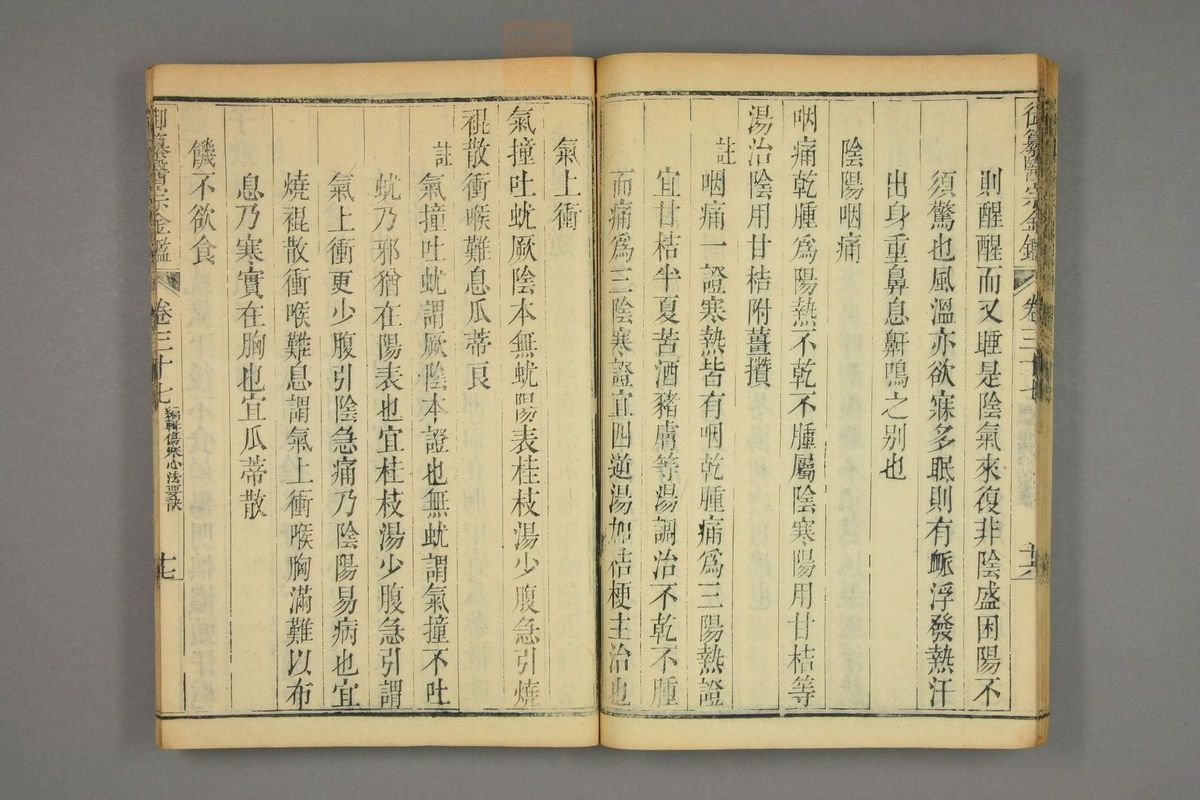 御纂醫宗金鑑 卷三十七 十六
則醒醒而又睡是陰氣來復非陰盛困陽不
須驚也風溫亦欲寐多眠則有脈浮發熱汗
出身重鼻息鼾鳴之別也
陰陽咽痛
咽痛乾腫爲陽熱不乾不腫屬陰寒陽用甘桔等
湯治陰用甘桔附薑攢
註咽痛一證寒熱皆有咽乾腫痛爲三陽熱證
宜甘桔半夏苦酒豬膚等湯調治不乾不腫
而痛爲三陰寒證宜四逆湯加桔梗主治也
氣上衝
氣撞吐蚘厥陰本無蚘陽表桂枝湯少腹急引燒
裩散衝喉難息瓜蒂良
註氣撞吐蚘謂厥陰本證也無蚘謂氣撞不吐
蚘乃邪猶在陽表也宜桂枝湯少腹急引謂
氣上衝更少腹引陰急痛乃陰陽易病也宜
燒裩散衝喉難息謂氣上衝喉胸滿難以布
息乃寒實在胸也宜瓜蒂散
饑不欲食
御纂醫宗金鑑 卷三十七 編輯傷寒心法要訣 十七